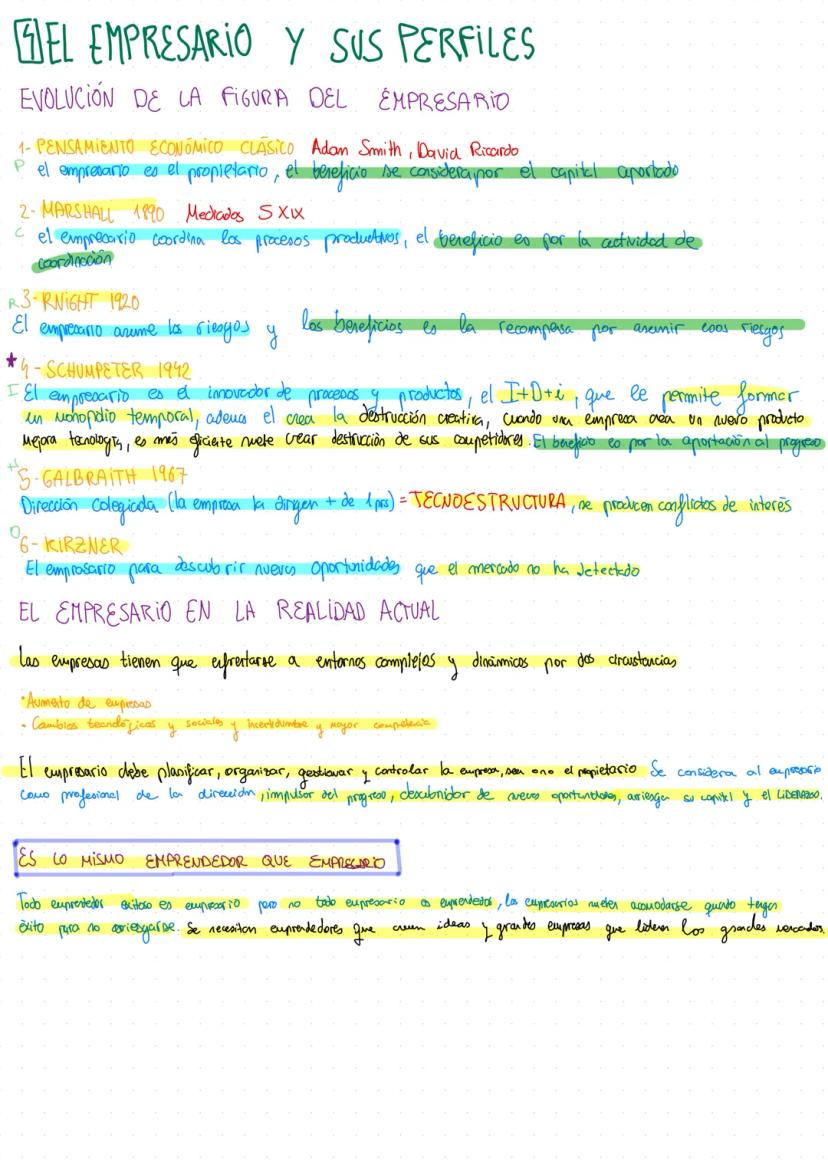 4 EL EMPRESARIO Y SUS PERFILES
EVOLUCIÓN DE LA FIGURA DEL EMPRESARIO
1- PENSAMIENTO ECONÓMICO CLÁSICO Adam Smith, David Ricardo
P el empresario es el propietario, el beneficio se considera por el capital aportado
2- MARSHALL 1890 Mediados S XIX
C el empresario coordina los procesos productivos, el beneficio es por la actividad de
coordinación
R 3- KNIGHT 1920
El empresario asume los riesgos y los beneficios es la recompensa por asumir esos riesgos
* 4- SCHUMPETER 1942
I El empresario es el innovador de procesos y productos, el I+D+i, que le permite formar
un monopolio temporal, además el crea la destrucción creativa, cuando una empresa crea un nuevo producto
mejora tecnología, es más eficiente suele crear destrucción de sus competidores. El beneficio es por la aportación al progreso
H
5- GALBRAITH 1967
Dirección colegiada (la empresa la dirigen + de 1 prs) = TECNOESTRUCTURA, se producen conflictos de interés
O 6- KIRZNER
El emprosario para descubrir nuevas oportunidades que el mercado no ha detectado
EL EMPRESARIO EN LA REALIDAD ACTUAL
Las empresas tienen que enfrentarse a entornos complejos y dinámicos por dos circustancias
• Aumento de empresas
• Cambios tecnológicos y sociales y incertidumbre y mayor competencia
El empresario debe planificar, organizar, gestionar y controlar la empresa, sea ono el propietario Se considera al empresario
como profesional de la dirección, impulsor del progreso, descubridor de nuevas oportunidades, arriesga su capital y el LIDERAZGO.
ES LO MISMO EMPRENDEDOR QUE EMPRESARIO
Todo emprendedor exitoso es empresario pero no todo empresario es emprendedor, los empresarios suelen acomodarse quando tengan
éxito para no arriesgarse. Se necesitan emprendedores que creen ideas y grandes empresas que lideren los grandes mercados.